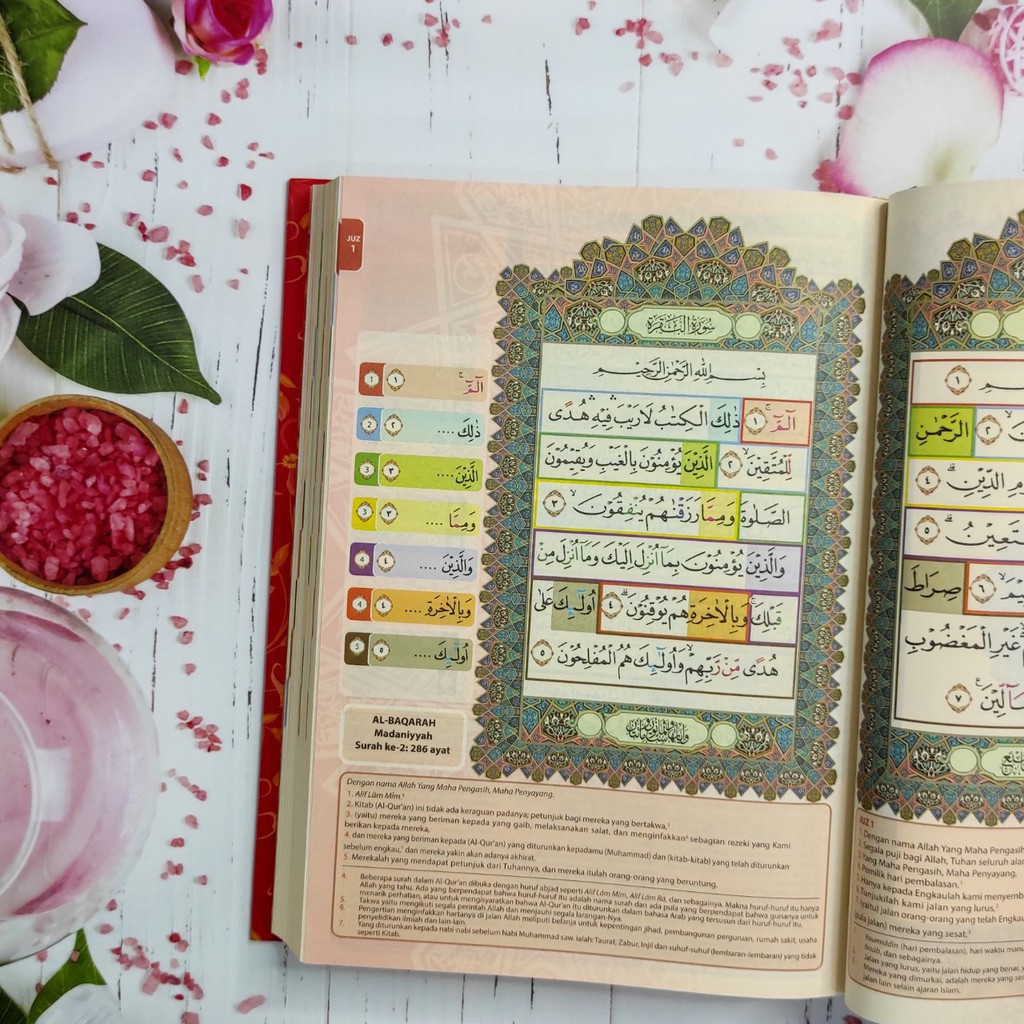 JUZ
1
سُورَةُ الْبَقَرَةِ
بِسْمِ اللّٰهِ الرَّحْمٰنِ الرَّحِيْمِ
الۤمّۤ ۚ ١ ذٰلِكَ الْكِتٰبُ لَا رَيْبَ ۛ فِيْهِ ۛ هُدًى
لِّلْمُتَّقِيْنَۙ ٢ الَّذِيْنَ يُؤْمِنُوْنَ بِالْغَيْبِ وَيُقِيْمُوْنَ
الصَّلٰوةَ وَمِمَّا رَزَقْنٰهُمْ يُنْفِقُوْنَۙ ٣
وَالَّذِيْنَ يُؤْمِنُوْنَ بِمَآ اُنْزِلَ اِلَيْكَ وَمَآ اُنْزِلَ مِنْ
قَبْلِكَۚ وَبِالْاٰخِرَةِ هُمْ يُوْقِنُوْنَۗ ٤ اُولٰۤىِٕكَ عَلٰى
هُدًى مِّنْ رَّبِّهِمْۙ وَاُولٰۤىِٕكَ هُمُ الْمُفْلِحُوْنَ ٥
1 ١ الۤمّۤ ۚ
2 ٢ ذٰلِكَ ....
3 ٣ الَّذِيْنَ ....
3 ٣ وَمِمَّا ....
4 ٤ وَالَّذِيْنَ ....
4 ٤ وَبِالْاٰخِرَةِ ....
5 ٥ اُولٰۤىِٕكَ ....
AL-BAQARAH
Madaniyyah
Surah ke-2: 286 ayat
Dengan nama Allah Yang Maha Pengasih, Maha Penyayang.
1. Alif Lām Mīm.⁴
2. Kitab (Al-Qur'an) ini tidak ada keraguan padanya; petunjuk bagi mereka yang bertakwa,⁵
3. (yaitu) mereka yang beriman kepada yang gaib, melaksanakan salat, dan menginfakkan⁶ sebagian rezeki yang Kami
berikan kepada mereka,
4. dan mereka yang beriman kepada (Al-Qur'an) yang diturunkan kepadamu (Muhammad) dan (kitab-kitab) yang telah diturunkan
sebelum engkau,⁷ dan mereka yakin akan adanya akhirat.
5. Merekalah yang mendapat petunjuk dari Tuhannya, dan mereka itulah orang-orang yang beruntung.
4. Beberapa surah dalam Al-Qur'an dibuka dengan huruf abjad seperti Alif Lām Mīm, Alif Lām Rā, dan sebagainya. Makna huruf-huruf itu hanya
Allah yang tahu. Ada yang berpendapat bahwa huruf-huruf itu adalah nama surah dan ada pula yang berpendapat bahwa gunanya untuk
menarik perhatian, atau untuk mengisyaratkan bahwa Al-Qur'an itu diturunkan dalam bahasa Arab yang tersusun dari huruf-huruf itu.
5. Takwa yaitu mengikuti segala perintah Allah dan menjauhi segala larangan-Nya.
6. Pengertian menginfakkan hartanya di jalan Allah meliputi belanja untuk kepentingan jihad, pembangunan perguruan, rumah sakit, usaha
penyelidikan ilmiah dan lain-lain.
7. Yang diturunkan kepada nabi-nabi sebelum Nabi Muhammad saw. ialah: Taurat, Zabur, Injil dan suhuf-suhuf (lembaran-lembaran) yang tidak
seperti Kitab.
١
الرَّحْمٰنِ ٢
الدِّيْنِۗ ٤
٥
صِرَاطَ ٦
غَيْرِ الْمَغْضُوْبِ
٧
JUZ 1
1. Dengan nama Allah Yang Maha Pengasih
2. Segala puji bagi Allah, Tuhan seluruh
3. Yang Maha Pengasih, Maha Penyayang,
4. Pemilik hari pembalasan.
5. Hanya kepada Engkaulah kami
6. Tunjukilah kami jalan yang lurus,
7. (yaitu) jalan orang-orang yang telah
pula jalan) mereka yang sesat.
(hari pembalasan), hari waktu
dan sebagainya.
Jalan yang lurus, yaitu jalan hidup yang benar,
Mereka yang dimurkai, adalah mereka yang
jalan lain selain ajaran Islam.